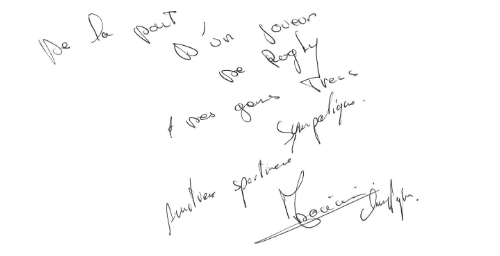 De la part
D'un joueur
De Rugby
à des gens Tres
Sympatique.
Amitiées sportives